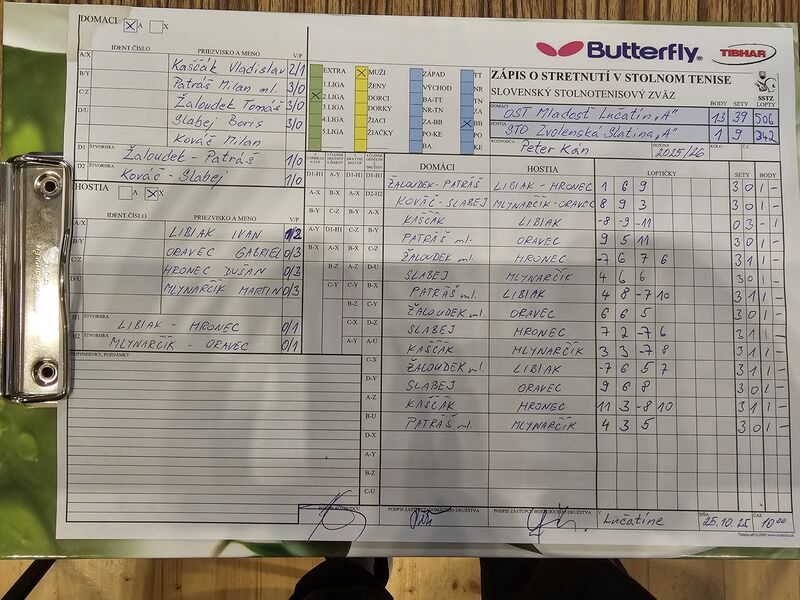 DOMACI A X
IDENT ČÍSLO PRIEZVISKO A MENO V/P
A/X Kaščák Vladislav 2/1
B/Y Patráš Milan ml. 3/0
C/Z Žaloudek Tomáš 3/0
D/U Slabej Boris 3/0
Kováč Milan
D1 ŠTVORHRA Žaloudek - Patráš 1/0
D2 Kováč - Slabej 1/0
HOSTIA A X
IDENT ČÍSLO PRIEZVISKO A MENO V/P
A/X LIBIAK IVAN 1/2
B/Y ORAVEC GABRIEL 0/3
C/Z HRONEC DUŠAN 0/3
D/U MLYNARČÍK MARTIN 0/3
H1 ŠTVORHRA LIBIAK - HRONEC 0/1
H2 ŠTVORHRA MLYNARČÍK - ORAVEC 0/1
PRIPOMIENKY, POZNÁMKY
EXTRA MUŽI ZÁPAD TT
1.LIGA ŽENY VÝCHOD
2.LIGA DORCI BA-TT
3.LIGA DORKY
4.LIGA ŽIACI ZA-BB BB
5.LIGA ŽIAČKY PO-KE
BA
Butterfly TIBHAR
ZÁPIS O STRETNUTÍ V STOLNOM TENISE
SLOVENSKÝ STOLNOTENISOVÝ ZVÄZ
SSTZ
BODY SETY LOPTY
DOMÁCI OST Mladosť Lučatín „A" 13 39 506
HOSTIA STO Zvolenská Slatina „A" 1 9 342
ROZHODCA Peter Kán SEZÓNA 2025/26 KOLO Č.Z.
DOMÁCI HOSTIA LOPTIČKY SETY BODY
ŽALOUDEK-PATRÁŠ LIBIAK - HRONEC 1 6 9 3 0 1 -
KOVÁČ - SLABEJ MLYNARČÍK-ORAVEC 8 9 3 3 0 1 -
KAŠČÁK LIBIAK -8 -9 -11 0 3 - 1
PATRÁŠ ml. ORAVEC 9 5 11 3 0 1 -
ŽALOUDEK ml. HRONEC -7 6 7 6 3 1 1 -
SLABEJ MLYNARČÍK 4 6 6 3 0 1 -
PATRÁŠ ml. LIBIAK 4 8 -7 10 3 1 1 -
ŽALOUDEK ml. ORAVEC 6 6 5 3 0 1 -
SLABEJ HRONEC 7 2 -7 6 3 1 1 -
KAŠČÁK MLYNARČÍK 3 3 -7 8 3 1 1 -
ŽALOUDEK ml. LIBIAK -7 6 5 7 3 1 1 -
SLABEJ ORAVEC 9 6 8 3 0 1 -
KAŠČÁK HRONEC 11 3 -8 10 3 1 1 -
PATRÁŠ ml. MLYNARČÍK 4 3 5 3 0 1 -
PODPIS ROZHODCU PODPIS ZÁSTUPCU DOMÁCEHO DRUŽSTVA PODPIS ZÁSTUPCU HOSŤUJÚCEHO DRUŽSTVA V Lučatíne DŇA 25.10.25 ČAS 10 00